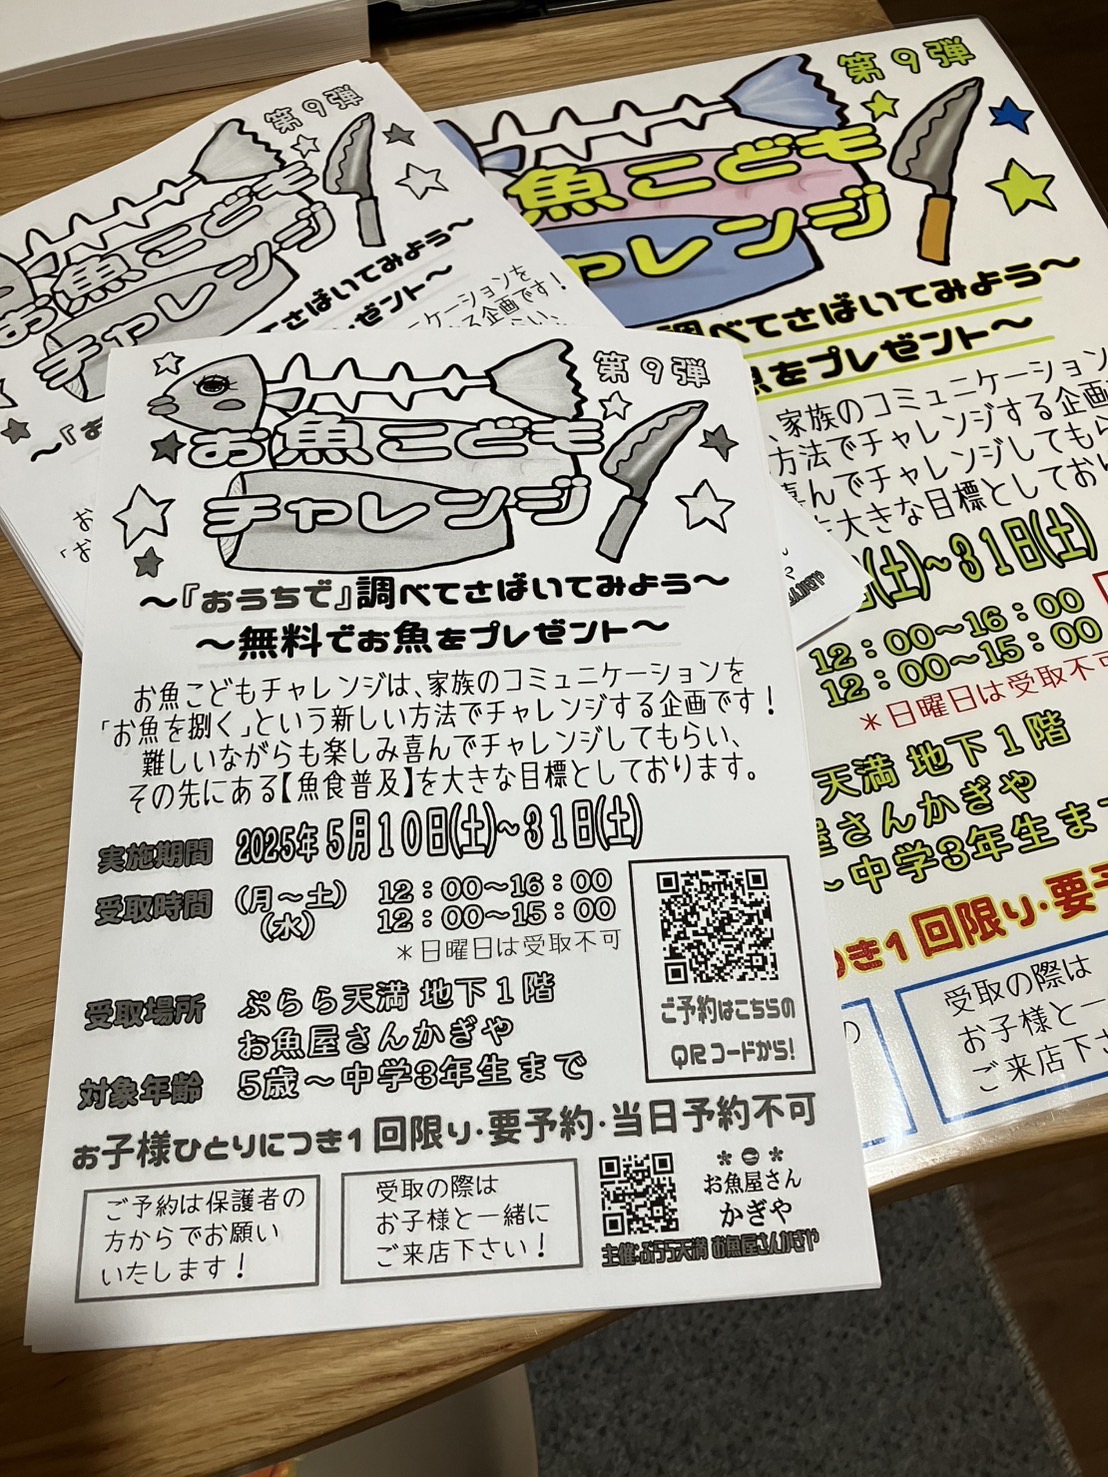 第9弾
お魚こども
チャレンジ
～『おうちで』調べてさばいてみよう～
～無料でお魚をプレゼント～
お魚こどもチャレンジは、家族のコミュニケーションを
「お魚を捌く」という新しい方法でチャレンジする企画です！
難しいながらも楽しみ喜んでチャレンジしてもらい、
その先にある【魚食普及】を大きな目標としております。
実施期間 2025年5月10日(土)～31日(土)
受取時間 (月～土) 12：00～16：00
(水) 12：00～15：00
＊日曜日は受取不可
受取場所 ぷらら天満 地下1階
お魚屋さんかぎや
対象年齢 5歳～中学3年生まで
ご予約はこちらの
QRコードから!
お子様ひとりにつき1回限り・要予約・当日予約不可
ご予約は保護者の
方からでお願い
いたします！
受取の際は
お子様と一緒に
ご来店下さい！
お魚屋さん
かぎや
主催:ぷらら天満 お魚屋さんかぎや
第9弾
お魚こども
チャレンジ
さばいてみよう～
ゼント～
ケーションを
る企画です！
第9弾
魚こども
ャレンジ
調べてさばいてみよう～
魚をプレゼント～
、家族のコミュニケーション
方法でチャレンジする企画
喜んでチャレンジしてもら
を大きな目標としており
(土)～31日(土)
12：00～16：00
12：00～15：00
＊日曜日は受取不可
天満 地下1階
屋さんかぎや
～中学3年生ま
つき1回限り・要予
受取の際は
お子様と一
ご来店下さ